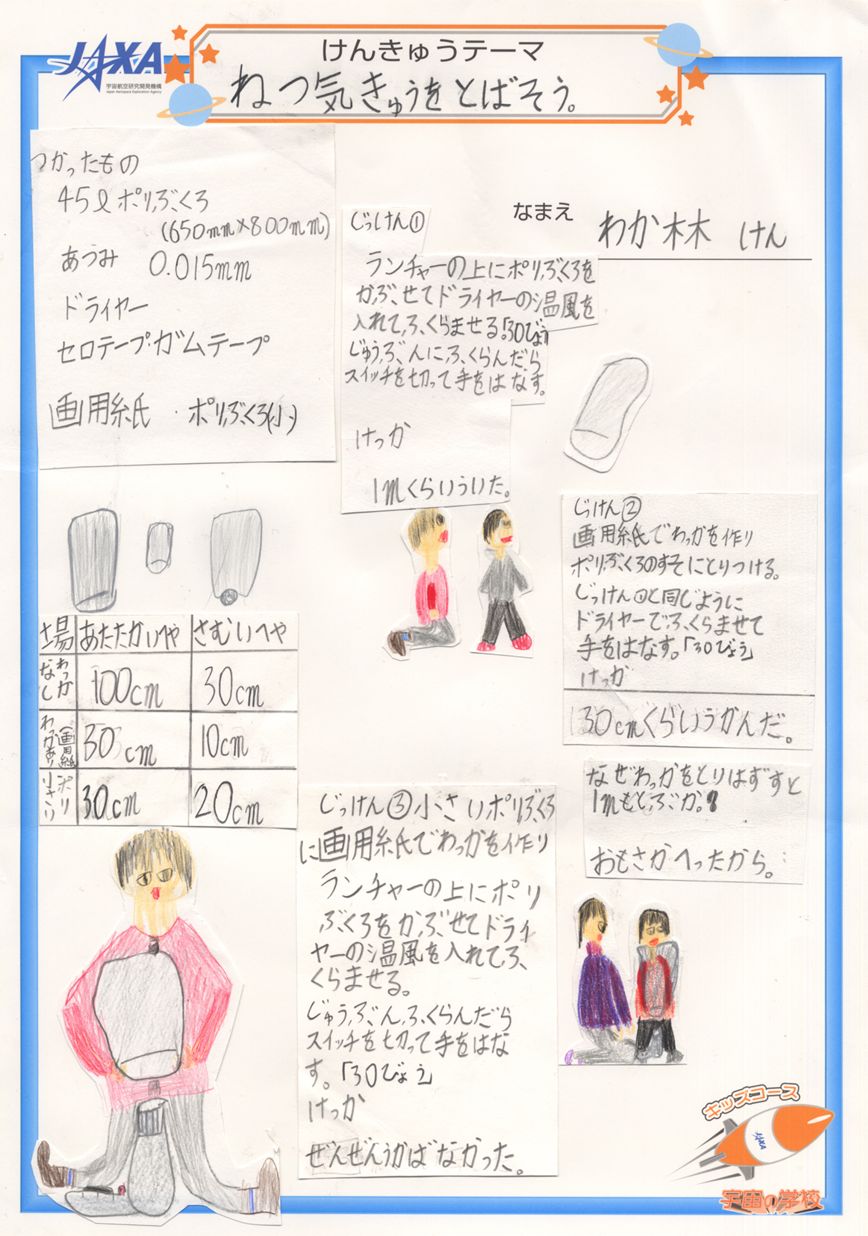 JAXA
宇宙航空研究開発機構
Japan Aerospace Exploration Agency
けんきゅうテーマ
ねつ気きゅうをとばそう。
なまえ
わか林 けん
つかったもの
45ℓポリぶくろ
(650mm×800mm)
あつみ 0.015mm
ドライヤー
セロテープ・ガムテープ
画用紙 ・ポリぶくろ(小)
じっけん①
ランチャーの上にポリぶくろを
かぶせてドライヤーの温風を
入れてふくらませる。「30びょう」
じゅうぶんにふくらんだら
スイッチを切って手をはなす。
けっか
1mくらいういた。
じっけん②
画用紙でわっかを作り
ポリぶくろのすそにとりつける。
じっけん①と同じように
ドライヤーでふくらませて
手をはなす。「30びょう」
けっか
30cmくらいうかんだ。
なぜわっかをとりはずすと
1mもとぶか?
おもさがへったから。
場 あたたかいへや さむいへや
わっかなし 100cm 30cm
わっかあり(画用紙 30cm 10cm
ポリ小さい 30cm 20cm
じっけん③小さいポリぶくろ
に画用紙でわっかを作り
ランチャーの上にポリ
ぶくろをかぶせてドライ
ヤーの温風を入れてふ
くらませる。
じゅうぶんふくらんだら
スイッチを切って手をはな
す。「30びょう」
けっか
ぜんぜんうかばなかった。
キッズコース
JAXA
宇宙の学校